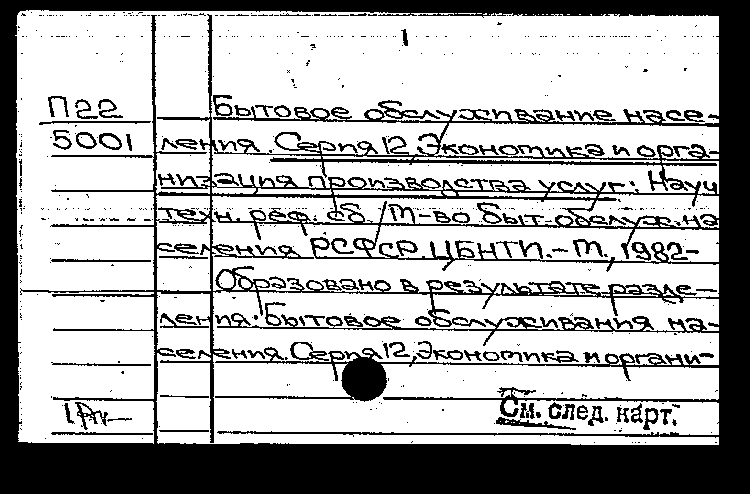 1
П22
5001
Бытовое обслуживание насе-
ления. Серия 12, Экономика и орга-
низация производства услуг: Науч.
техн. реф. сб. / М-во быт. обслуж. на
селения РСФСР. ЦБНТИ. - М., 1982-
Образовано в результате разде-
ления: Бытовое обслуживания на-
селения. Серия 12, Экономика и органи-
См. след. карт.